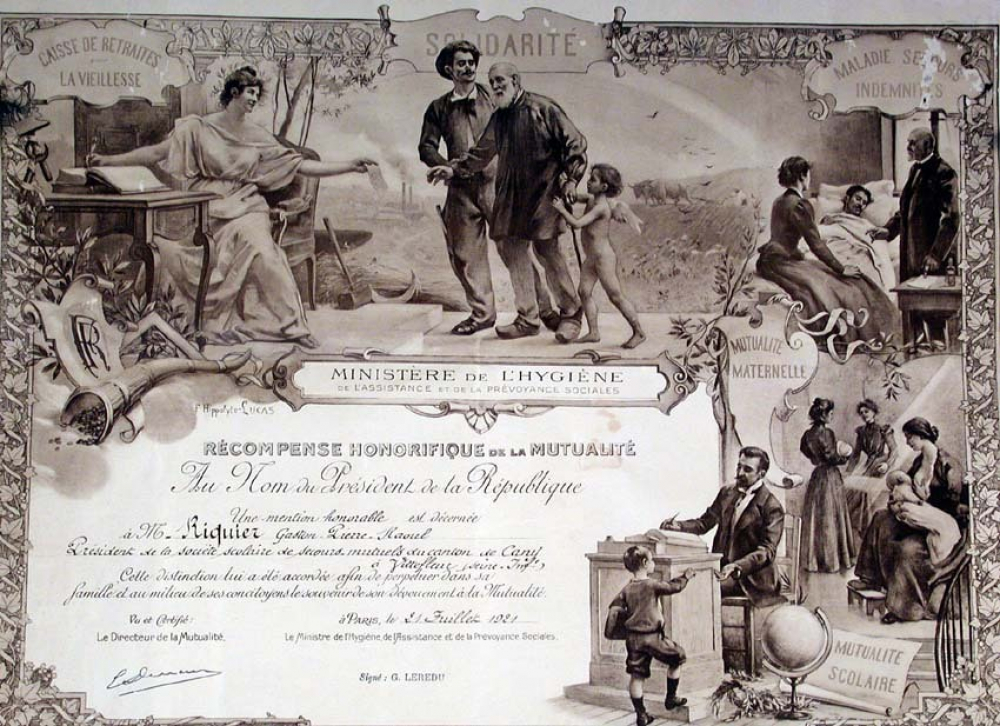 CAISSE DE RETRAITES
pour
LA VIEILLESSE
SOLIDARITÉ
MALADIE SECOURS
INDEMNITÉS
RF
MUTUALITÉ
MATERNELLE
MINISTÈRE DE L'HYGIÈNE
DE L'ASSISTANCE ET DE LA PRÉVOYANCE SOCIALES
Fs Hippolyte-LUCAS
RÉCOMPENSE HONORIFIQUE DE LA MUTUALITÉ
Au Nom du Président de la République
Une mention honorable est décernée
à M. Riquier Gaston-Pierre-Raoul
Président de la société scolaire de secours mutuels du canton de Cany
à Vittefleur (Seine-Infre)
Cette distinction lui a été accordée afin de perpétuer dans sa
famille et au milieu de ses concitoyens le souvenir de son dévouement à la Mutualité.
Vu et Certifié:
Le Directeur de la Mutualité,
à PARIS, le 21 Juillet 1921
Le Ministre de l'Hygiène, de l'Assistance et de la Prévoyance Sociales,
Signé : G. LEREDU
MUTUALITÉ
SCOLAIRE